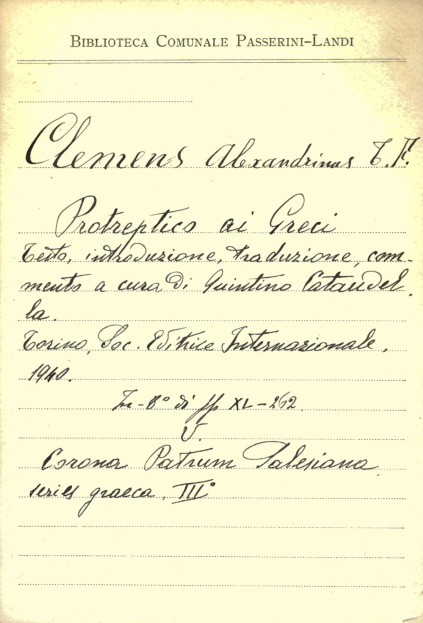 BIBLIOTECA COMUNALE PASSERINI-LANDI
Clemens Alexandrinus T. F.
Protreptico ai Greci
Testo, introduzione, traduzione, com-
mento a cura di Quintino Cataudel
la.
Torino, Soc. Editrice Internazionale,
1940.
In-8° di pp XL-262.
V.
Corona Patrum Salesiana
series graeca, III°